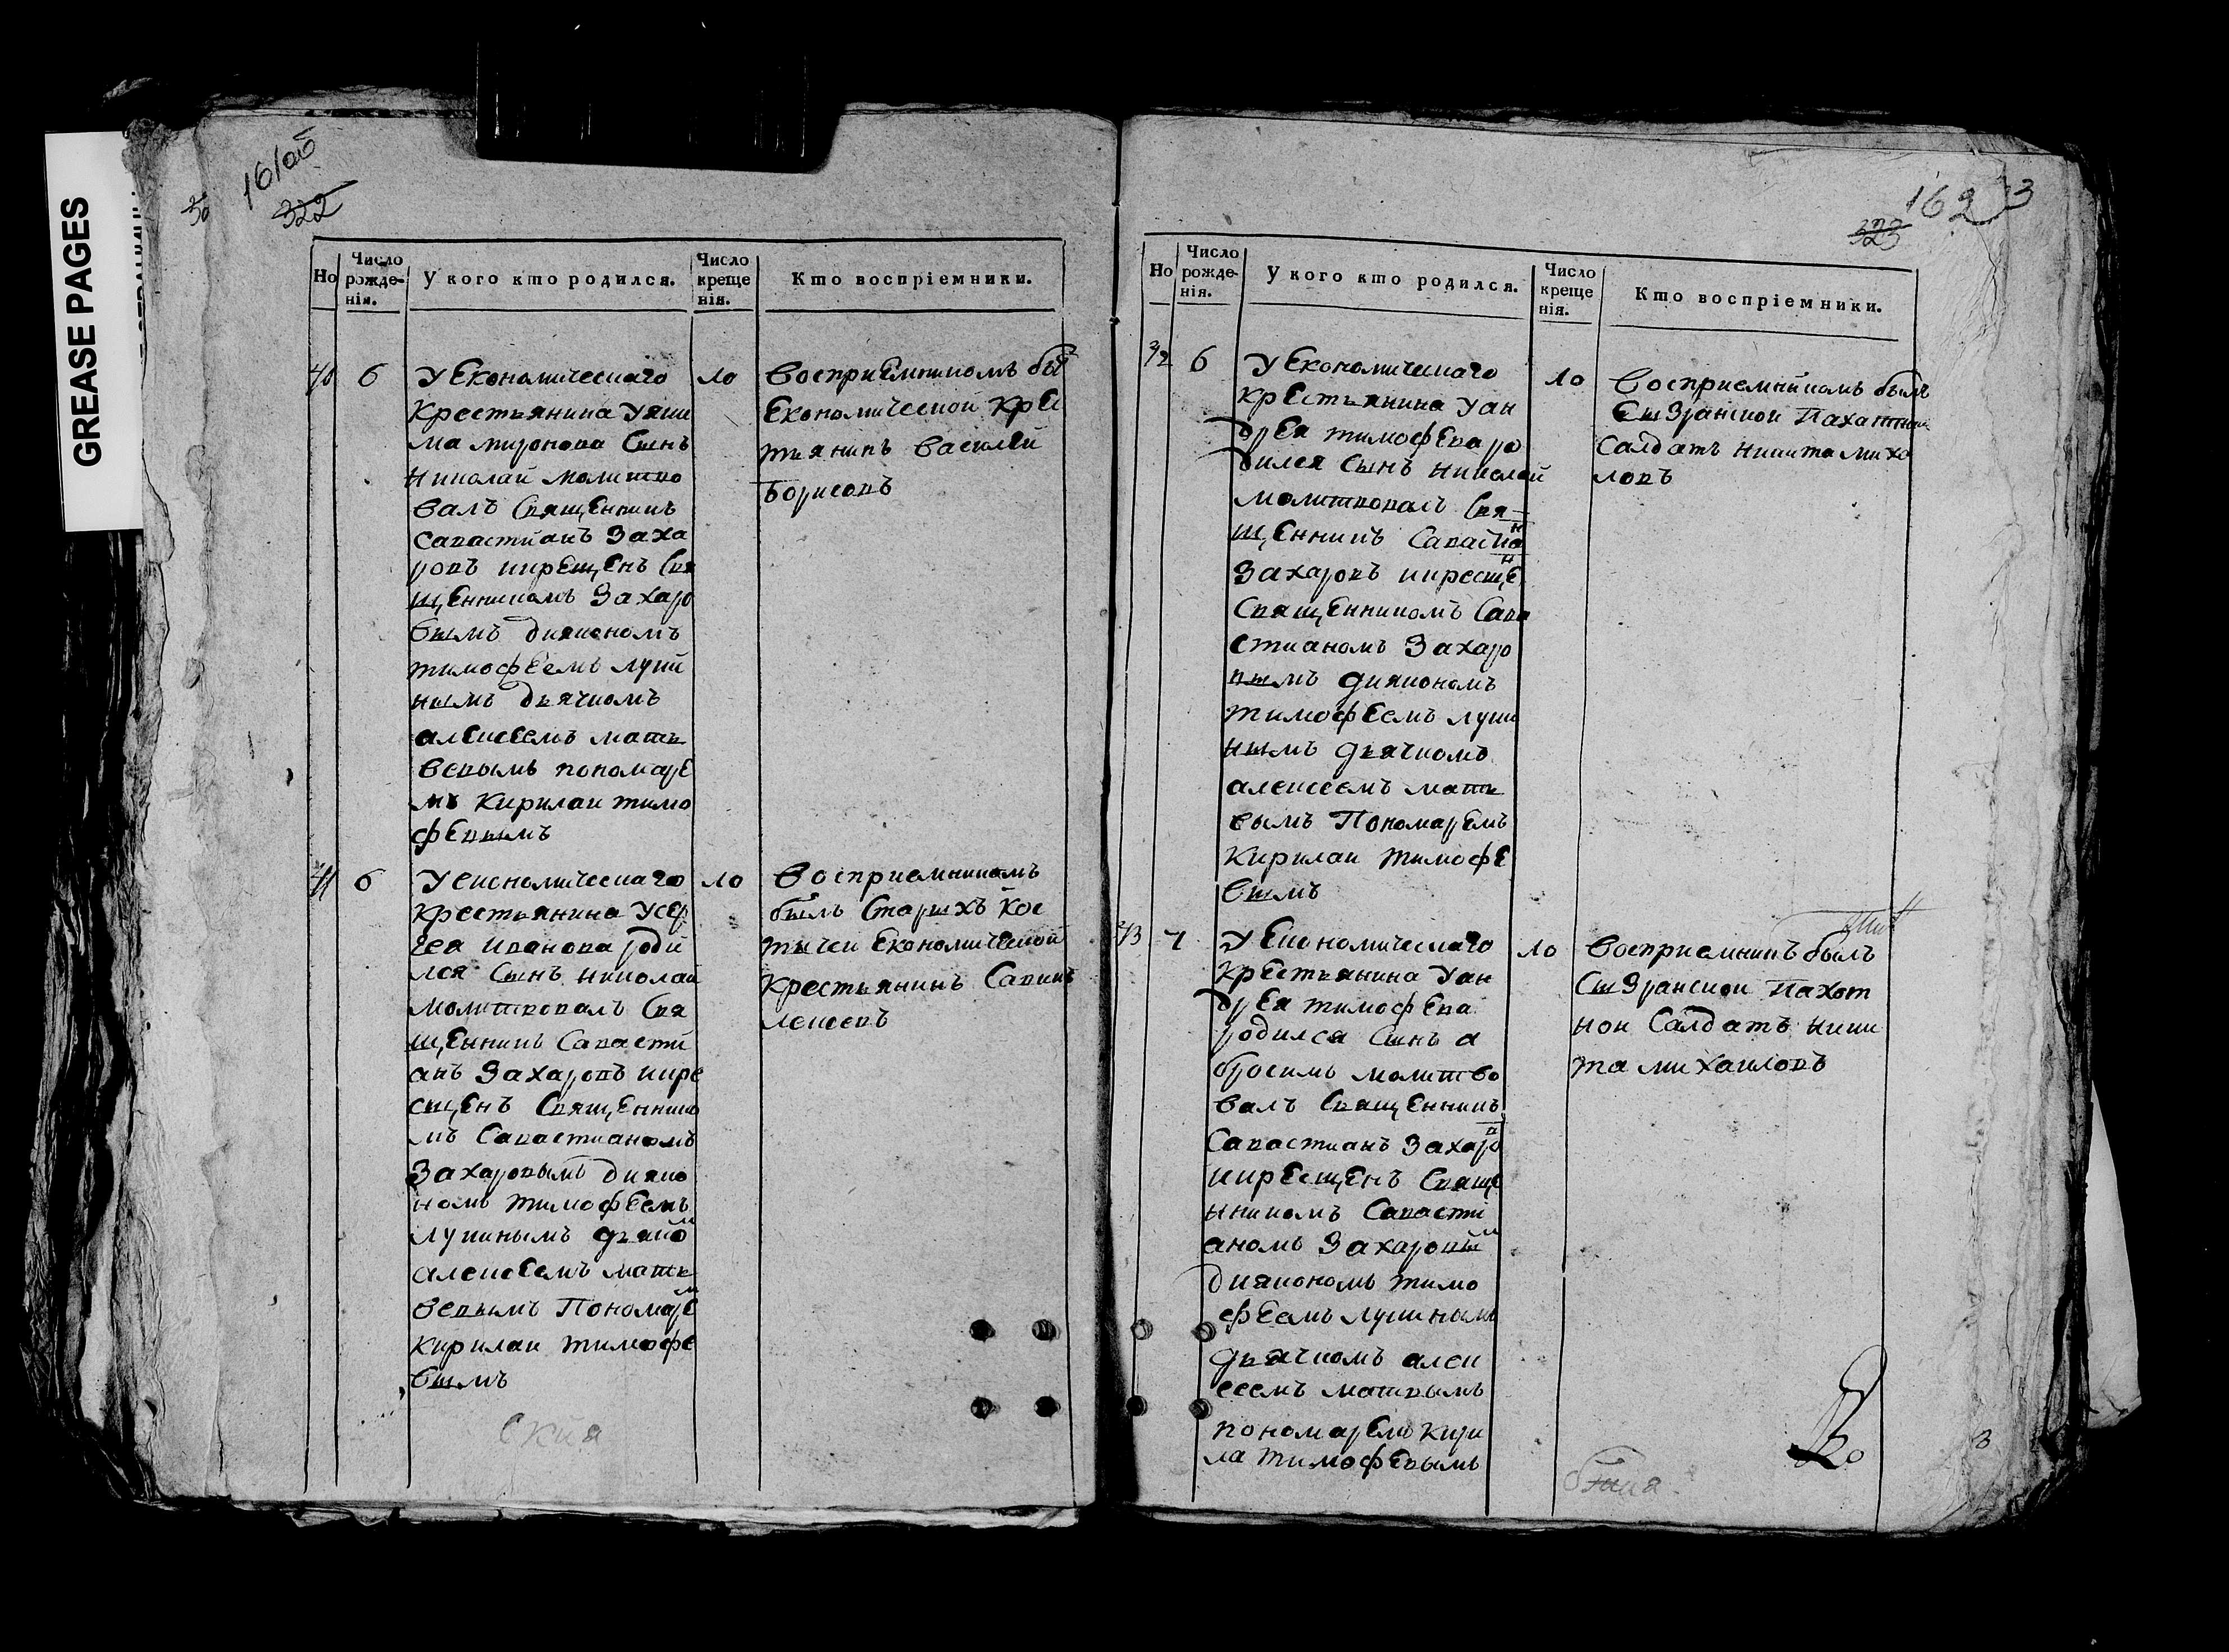 GREASE PAGES
161об
322
Но
Число рожденія.
У кого кто родился.
Число крещенія.
Кто воспріемники.
40 6 У Економическаго
крестьянина Уяки
ма миронова Сынъ
Николай молитво
валъ Священникъ
Савастианъ Заха
ровъ икрещенъ Свя
щенникомъ Захаро
вымъ диякономъ
тимофеемъ луки
нымъ дьячкомъ
алексеемъ матв
вевымъ пономаре
мъ Кирилаи тимо
февымъ
10
Восприемникомъ бы
Економической Крес
тьянинъ Василей
Борисовъ
41 6 У економическаго
крестьянина Усер
гея иванова роди
лся Сынъ николай
молитвовалъ Свя
щенникъ Савасти
анъ Захаровъ икре
щенъ Священнико
мъ Савастианомъ
Захаровымъ дияко
номъ тимофеемъ
лукинымъ дьячко
алексеемъ матв
вевымъ Пономаре
кирилаи тимофе
вымъ
10
Восприемникомъ
былъ Старыхъ Кос
тычеи Економической
Крестьянинъ Савин
лексеевъ
ския
162
323
Но
Число рожденія.
У кого кто родился.
Число крещенія.
Кто воспріемники.
42 6 У Економическаго
крестьянина Уан
дрея тимофева ро
дился Сынъ николай
молитвовалъ Свя-
щенникъ Савастиа
Захаровъ икресще
Священникомъ Сава
стианомъ Захаро
вымъ диякономъ
тимофеемъ луки
нымъ дьячкомъ
алексеемъ матв
вымъ Пономаремъ
Кирилаи тимофе
вымъ
10
Восприемникомъ былъ
Сызранской Пахатной
Салдатъ никита миха
ловъ
43 7 У Економическаго
крестьянина Уан
дрея тимофева
родился Сынъ а
бросимъ молитво
валъ Священникъ
Савастианъ Захаро
икрещенъ Свяще
нникомъ Савасти
аномъ Захаровы
диякономъ тимо
феемъ лукинымъ
дьячкомъ алек
сеемъ матвымъ
пономаремъ кири
ла тимофевымъ
10
Восприемникъ былъ
Сызранской Пахот
ной Салдатъ ники
та михаиловъ